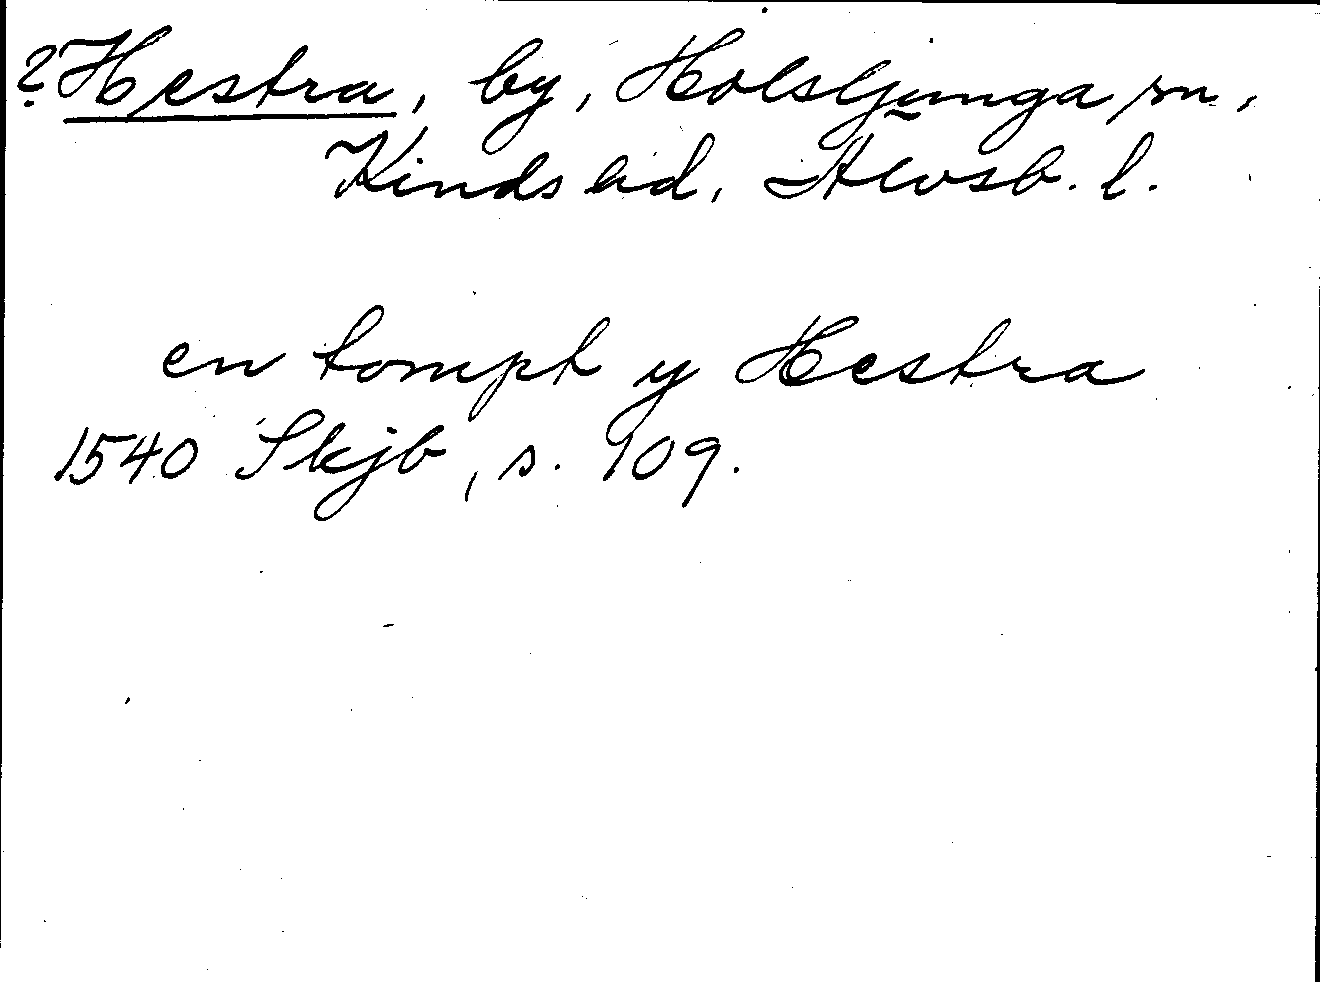 ? Hestra, by, Holsljunga sn,
Kinds hd, Älvsb. l.
en tompt y Hestra
1540 Skjb, s. 109.